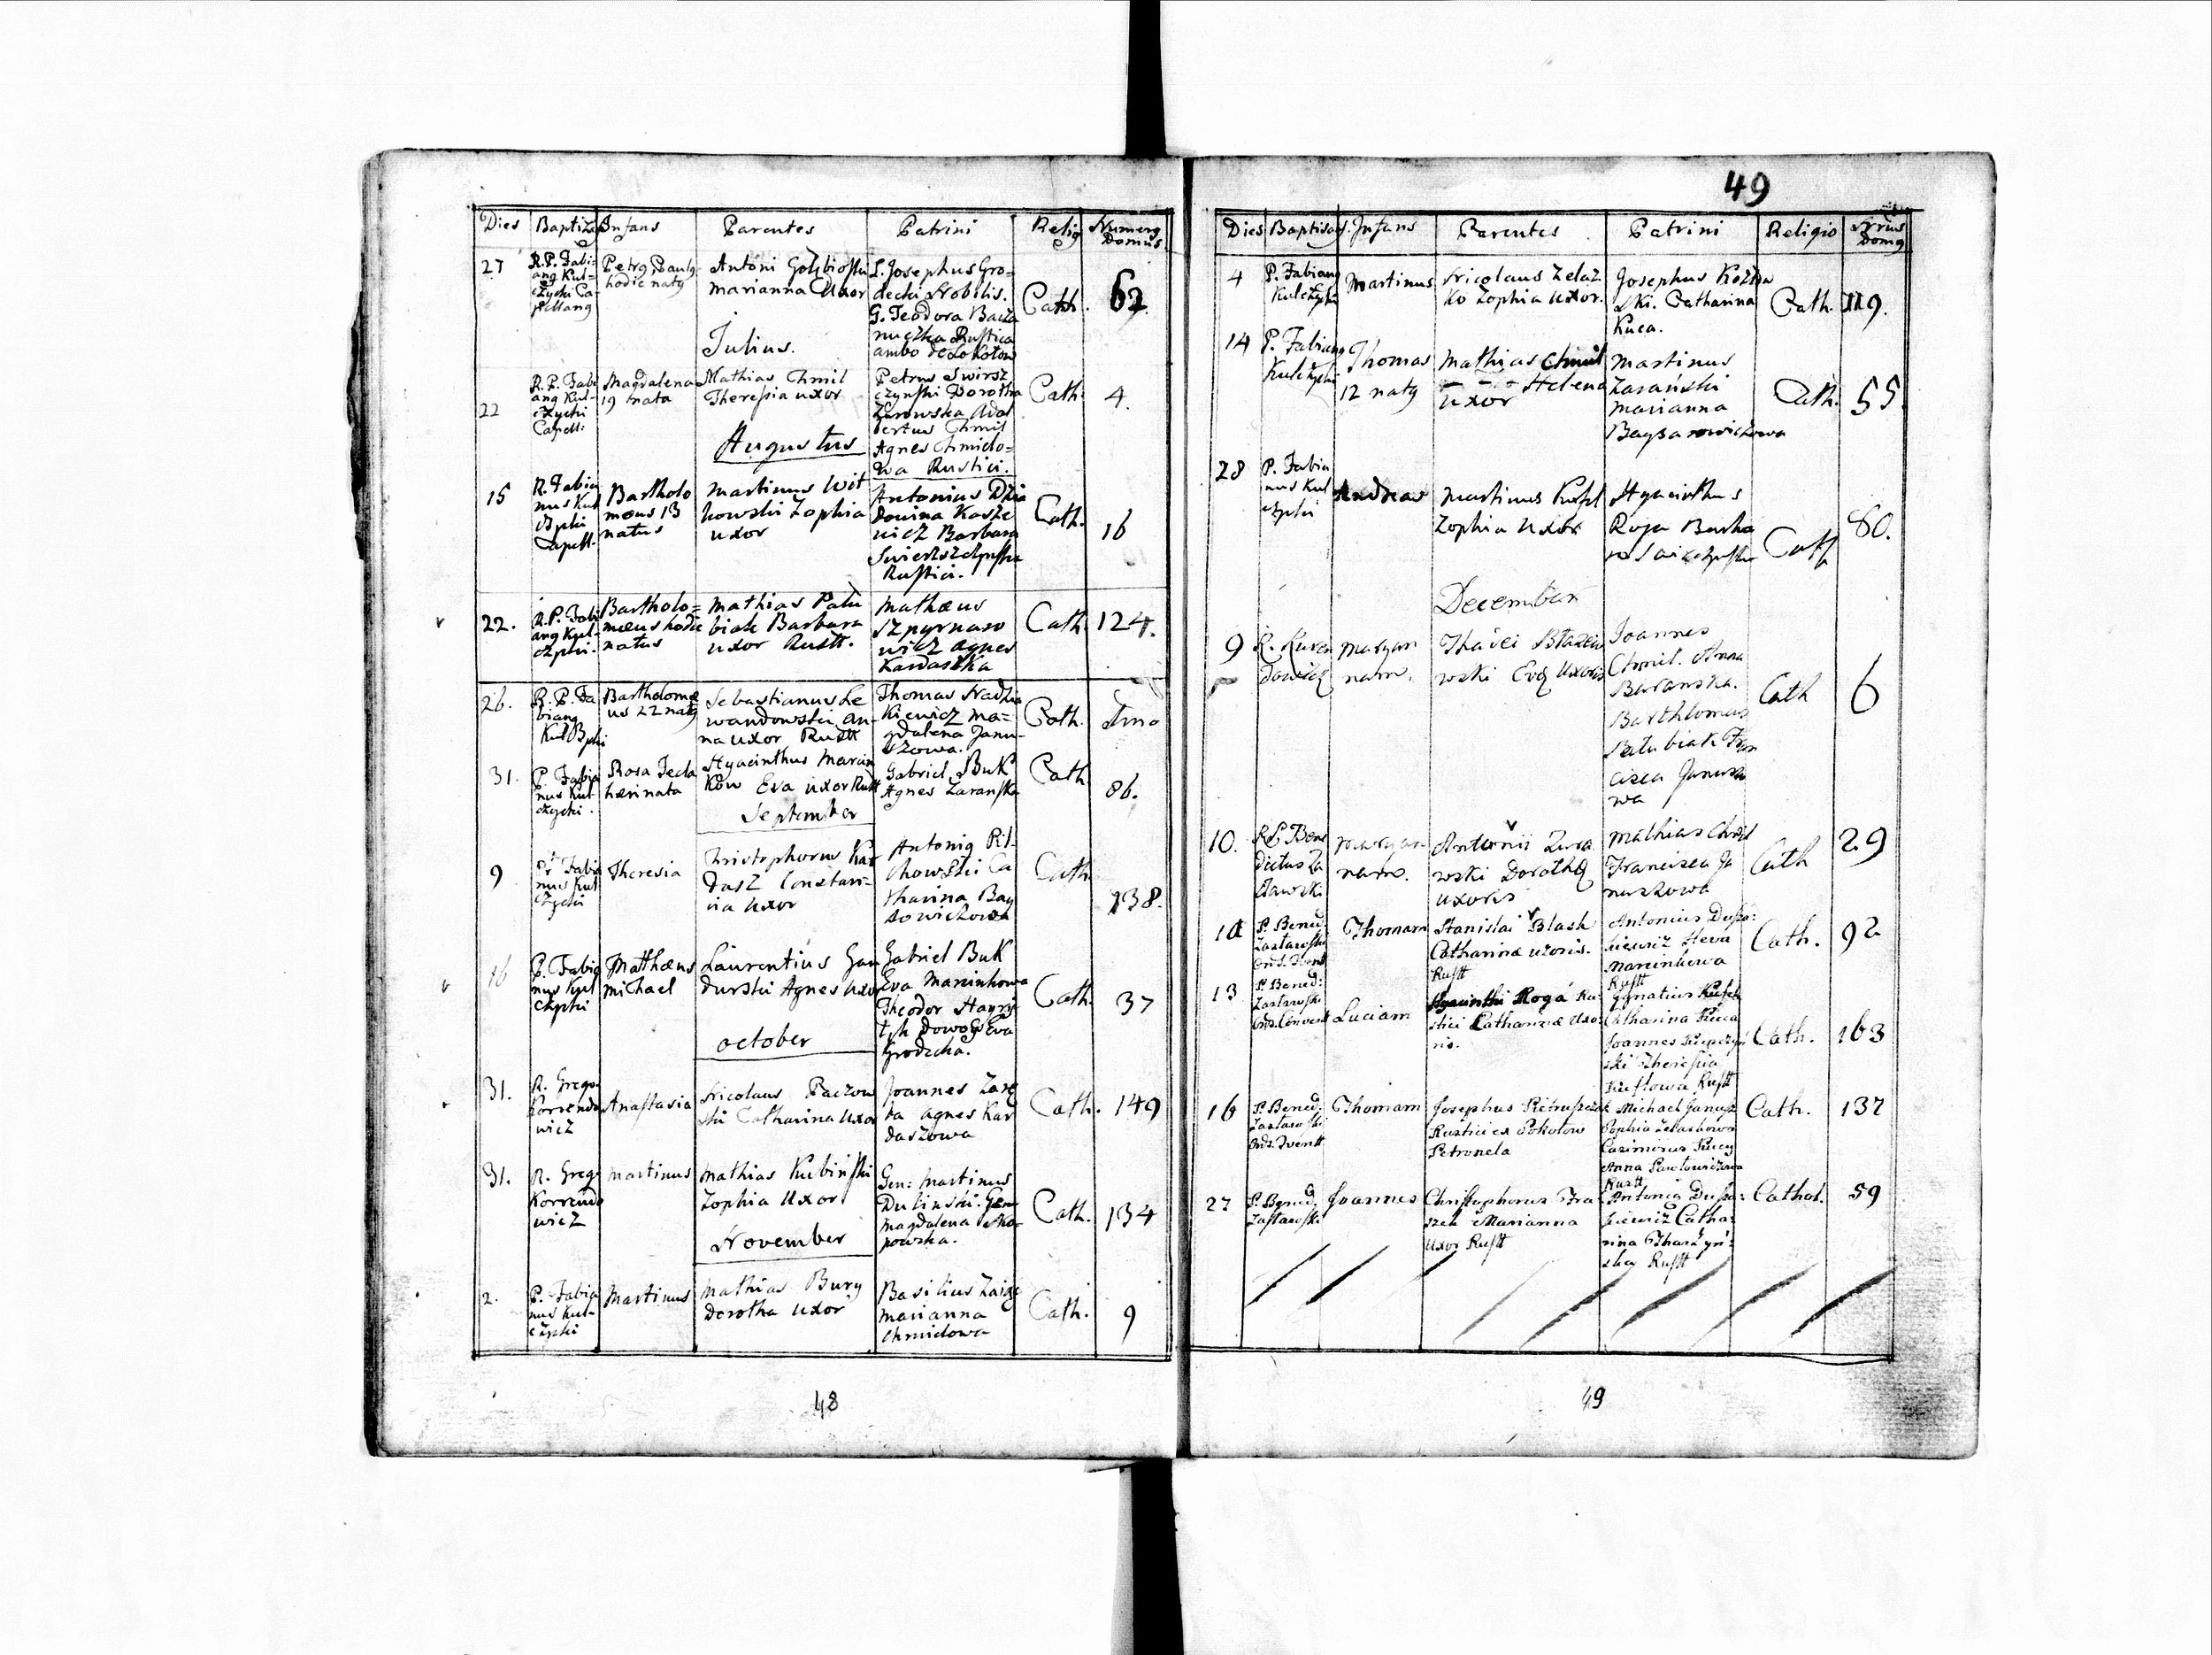 49
Dies Baptiza Infans Parentes Patrini Relig Numerg Domus
27 R.P. Fabi=
ang Kul=
czycki Ca=
pellang
Petrg Paulg
hodie natg
Antoni
Marianna Uxor
S. Josephus Gro=
decki Nobilis.
G. Teodora Bacza
Rustica
ambo de Sokołow
Cath. 62
Julius.
22 R.P. Fabi
ang Kul=
czycki
Capell:
Magdalena
19 nata
Mathias Chmil
Theresia uxor
Petrus Swirsz
czynski Dorotha
Żurowska Adal
bertus Chmil
Agnes Chmielo=
wa Rustici.
Cath. 4.
Augustus
15 R. Fabia
nus Kul
czycki
Capell.
Bartholo
mæus 13
natus
Martinus Wit
kowski Zophia
uxor
Antonius
Kasze
wicz Barbara
Rustici.
Cath. 16
22. R.P. Fabi
ang Kul=
czycki.
Bartholo=
mæus hodie
natus
Mathias Patu
biak Barbara
uxor Rustt.
Mathæus
Szpyrnaro
wicz Agnes
Kardaszka
Cath. 124.
26. R.P. Fa
biang
Bartholomæ
us 22 natg
Sebastianus Le
wandowski An=
na uxor Rustt
Thomas Nadzia
Kiewicz Ma=
gdalena Janu=
szowa.
Cath.
31. P. Fabia
nus Kul
czycki.
Rosa Tecla
heri nata
Hyacinthus Marcin
Kow Eva uxor Rustt
Gabriel Buk
Agnes Zaranska
Cath 86.
September
9 P. Fabia
nus Kul
czycki
Theresia
Christophorus Kar
dasz Constan=
tia uxor
Antonig Rit=
chowski Ca
tharina Bay
Cath 138.
16 P. Fabia
nus Kul
czycki
Matthæus
Michael
Laurentius Gan
durski Agnes Uxor
Gabriel Buk
Eva Marcinkowa
Theodor
Eva
Grodecka.
Cath. 37
October
31. R. Grego
Korrendo
wicz
Anastasia
Nicolaus Paczow
ski Catharina Uxor
Joannes Zarę
ba Agnes Kar
daszowa
Cath. 149
31. R. Grego
Korrendo
wicz
Martinus
Mathias Kubinski
Zophia Uxor
Gen: Martinus
Dulinski. Gen
Magdalena Sko=
powska.
Cath. 134
November
2. P. Fabia
nus Kul=
czycki
Martinus
Mathias Bury
Dorotha Uxor
Basilius Zając
Marianna
Chmielowa
Cath. 9
48
Dies Baptisans Infans Parentes Patrini Religio Nrus Domg
4 P. Fabiang
Kulczycki
Martinus
Nicolaus Zelaz
ko Zophia uxor.
Josephus
ski. Catharina
Kuca.
Cath. 119.
14 P. Fabiang
Kulczycki
Thomas
12 natg
Mathias Chmil
Helena
uxor
Martinus
Zaranski
Marianna
Cath. 55.
28 P. Fabia
nus Kul
czycki
Andreas
Martinus Kufel
Zophia Uxor
Hyacinthus
Roga Barba
ra
Cath 80.
December
9 R.
Maryan
nam.
Thadei Błażew
wski Evæ Uxoris
Joannes
Chmil. Anna
Baranska.
Barthlomeus
Patubiak Fran
cisca Janusz
wa
Cath 6
10. R.P. Bene
dictus Za
stawski
Maryan
nam.
Antonii Żura
wski Dorothæ
uxoris
Mathias Chmil
Francisca Ja
nuszowa
Cath 29
10 P. Bened.
Zastawski
Ord. S.
Thomam
Stanislai Blach
Catharinæ uxoris.
Rustt
Antonius
kiewicz Heva
Marcinkowa
Rustt
Cath. 92
13 P. Bened:
Zastawski
Ord. Convent
Luciam
Hyacinthi Roga Ru=
stici Catharinæ Uxo=
ris.
Ignatius Kufel
Catharina Kucca
Joannes
ski Theresia
Kuflowa Rustt
Cath. 163
16 P. Bened.
Zastawski
Thomam
Josephus
Rustici ex Sokołow
Petronela
Michael Janusz
Sophia Zelaskowa
Casimirus Kucy
Anna Pawłowiczowa
Rustt
Cath. 137
27 P. Bened.
Zastawski
Joannes
Christophorus Fra
szek Marianna
Uxor Rustt
Antonig
kiewicz Catha=
rina
Rustt
Cathol. 59
49